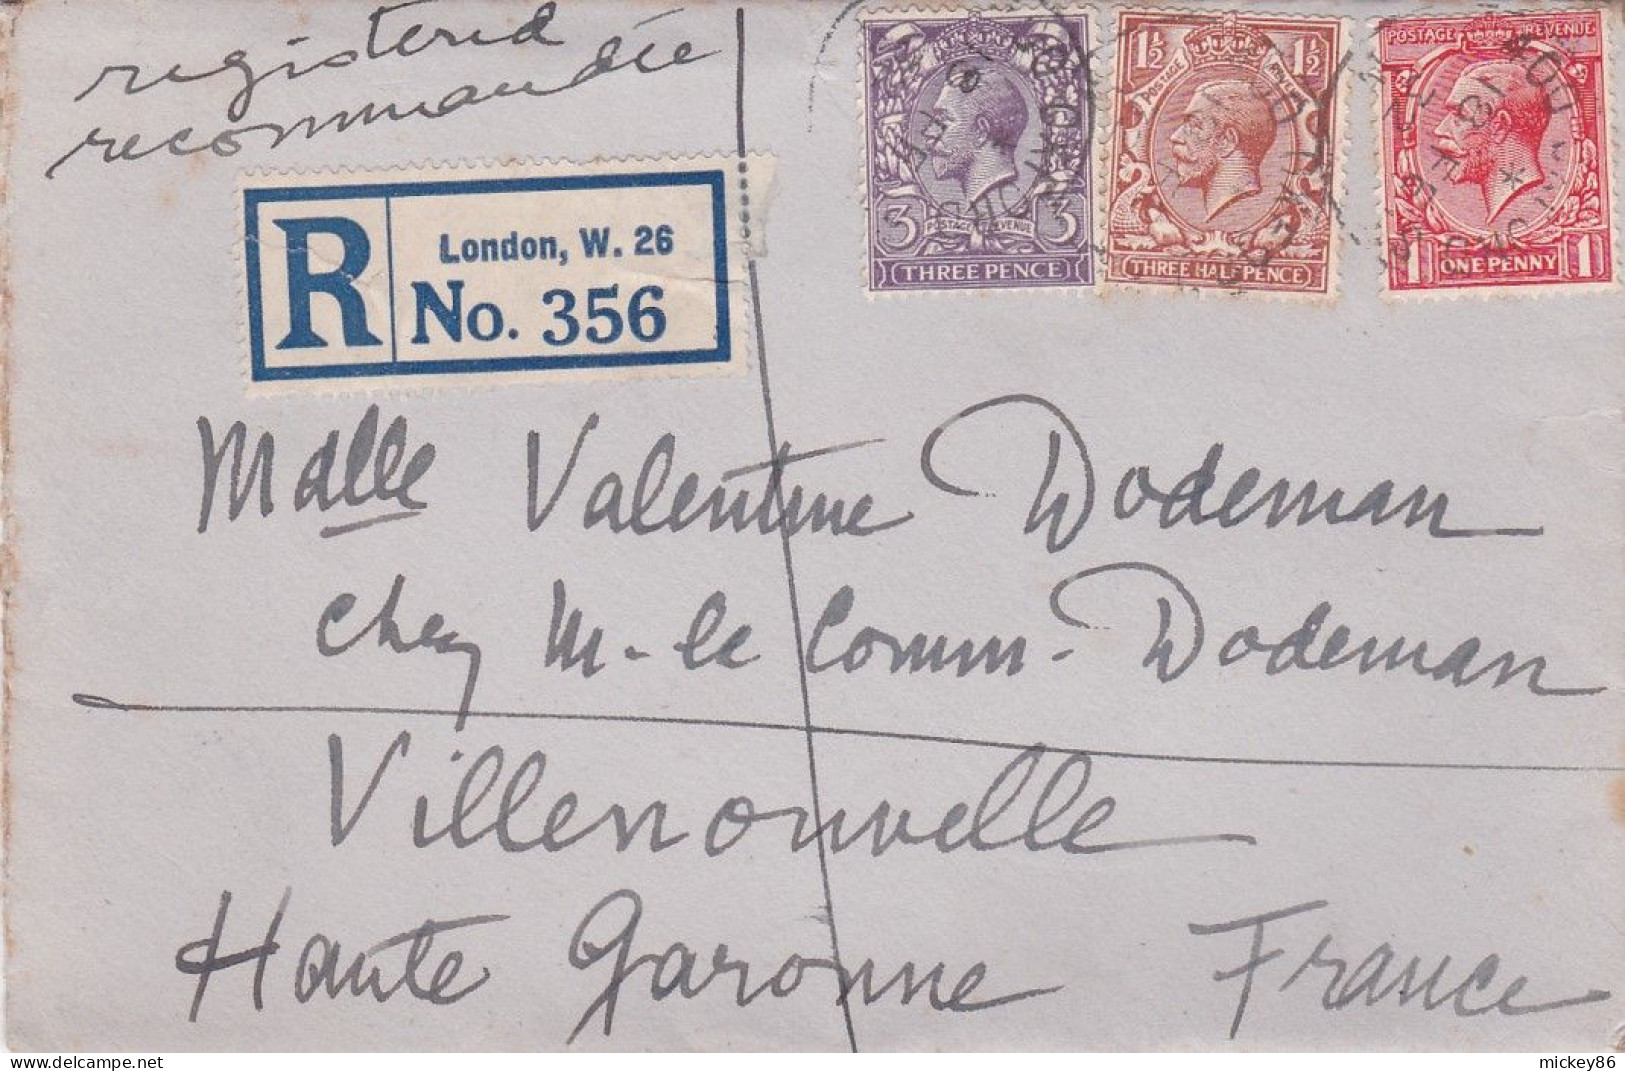 registered
recommandée
R London, W. 26
No. 356
3 POSTAGE REVENUE 3
THREE PENCE
1½ 1½
POSTAGE
THREE HALFPENCE
POSTAGE REVENUE
1 ONE PENNY 1
Madlle Valentine Dodeman
chez M. le Comm. Dodeman
Villenouvelle
Haute Garonne France
mickey86